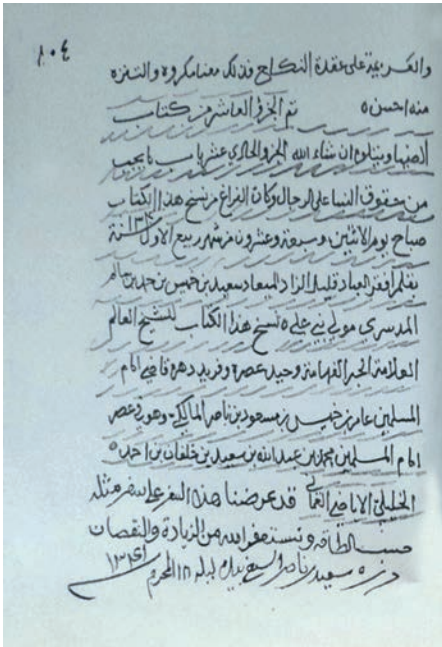 ٨٠٤
والعزيمة على عقدة النكاح فذلك معنا مكروه والتنزه
منه احسن ٥ تم الجزؤ العاشر من كتاب
الضيا ويتلوه ان شاء الله الجزؤ الحادي عشر باب ما يجب
من حقوق النسا على الرجال وكان الفراغ من نسخ هذا الكتاب
صباح يوم الاثنين وسبعة وعشرون من شهر ربيع الاول سنة
بقلم افقر العباد قليل الزاد للميعاد سعيد بن خميس بن
مولى بني علي ٥ نسخ هذا الكتاب للشيخ العالم
العلامة الحبر الفهامة وحيد عصره وفريد دهره قاضي امام
المسلمين عامر بن خميس بن مسعود بن ناصر المالكي وهو في عصر
امام المسلمين محمد بن عبدالله بن سعيد بن خلفان بن احمد ٥
الخليلي الاباضي العماني قد عرضنا هذا السفر على سفر مثله
حسب الطاقه ونستغفر الله من الزيادة والنقصان
سعيد بن ناصر السيفي بيده ليلة ١٨ المحرم